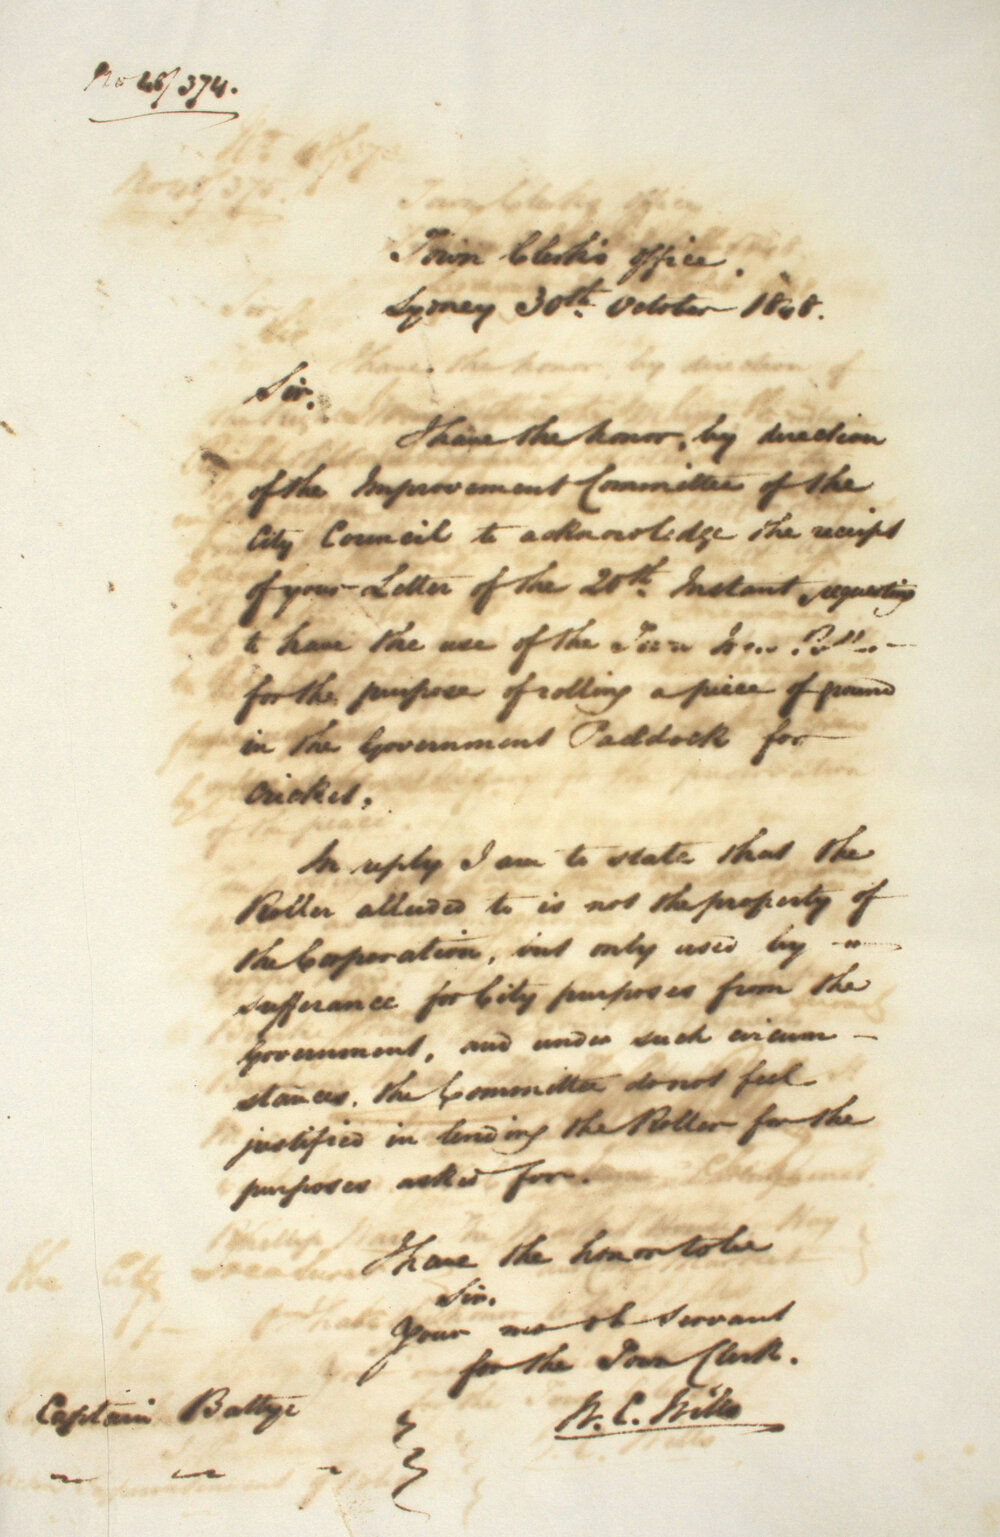 No 48/374.
Town Clerk's Office.
Sydney 30th. October 1848.
Sir,
I have the honor, by direction
of the Improvement Committee of the
City Council to acknowledge the receipt
of your Letter of the 20th. Instant requesting
to have the use of the Iron
for the purpose of rolling a piece of ground
in the Government Paddock for
Cricket.
In reply I am to state that the
Roller alluded to is not the property of
the Corporation, but only used by -
sufferance for City purposes from the
Government, and under such circum -
stances, the Committee do not feel
justified in lending the Roller for the
purposes asked for.
I have the honor to be
Sir.
Your mo ob Servant
for the Town Clerk.
W. C. Wills
Captain Battye